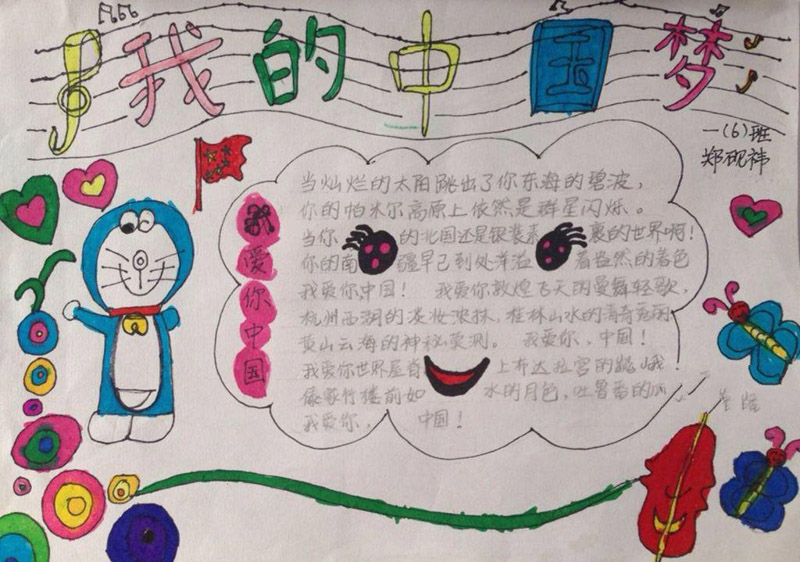 我的中国梦
一(6)班
郑砚祎
我爱你中国
当灿烂的太阳跳出了你东海的碧波，
你的帕米尔高原上依然是群星闪烁。
当你的北国还是银装素裹的世界啊！
你的南疆早已到处洋溢着盎然的春色
我爱你中国！ 我爱你敦煌飞天的曼舞轻歌，
杭州西湖的淡妆浓抹，桂林山水的清奇
黄山云海的神秘莫测。 我爱你，中国！
我爱你世界屋脊上布达拉宫的巍峨！
傣家竹楼前如水的月色，吐鲁番的
我爱你， 中国！